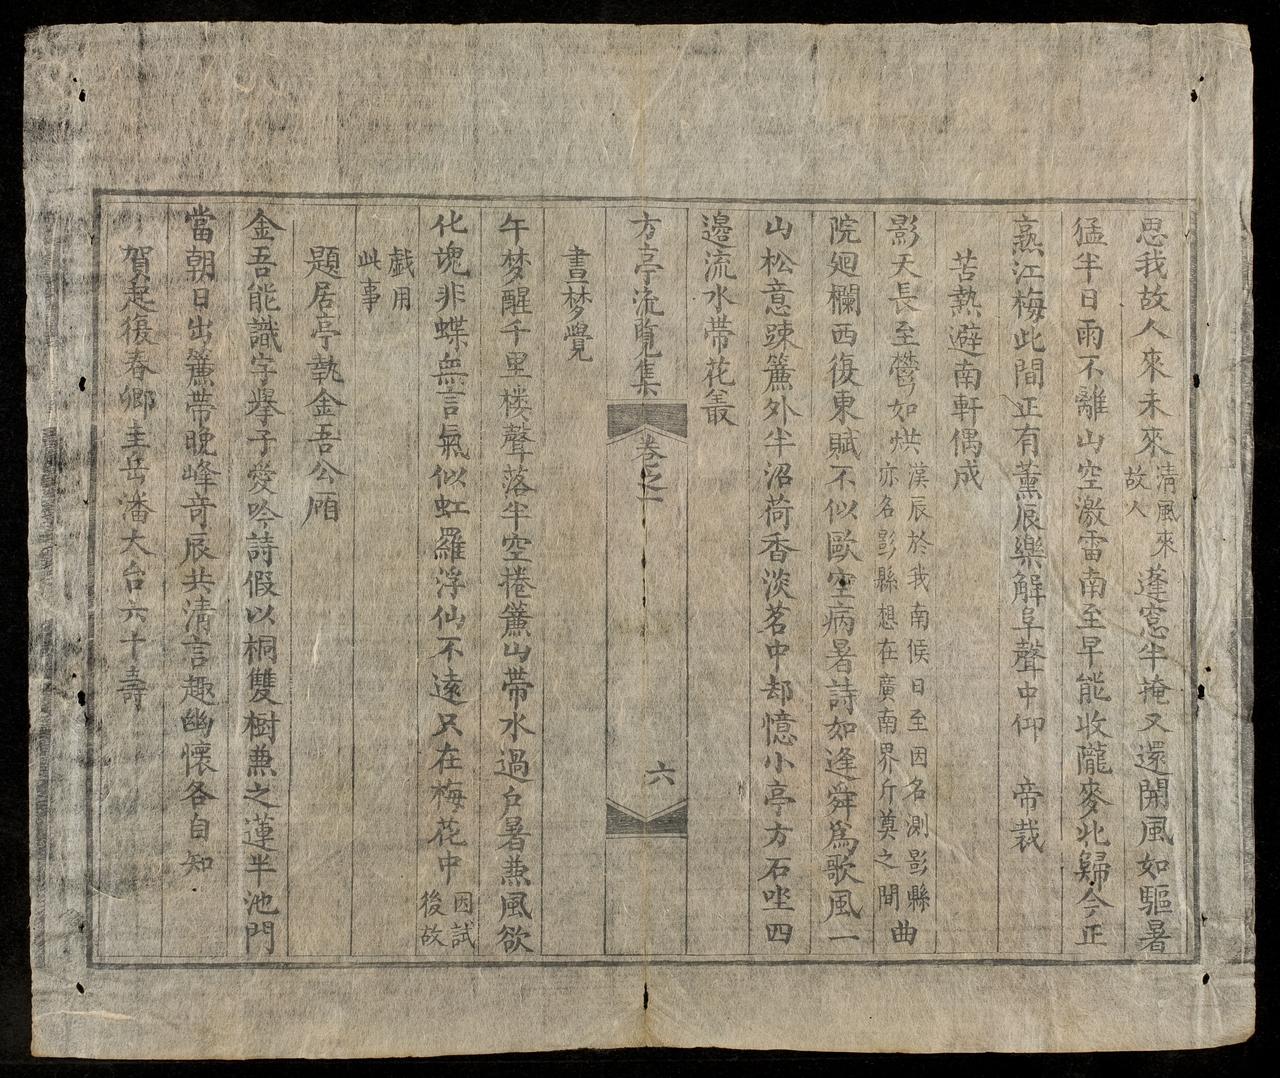 思我故人來未來清風來故人蓬窓半掩又還開風如驅暑
猛半日雨不離山空激雷南至早能收隴麥北歸今正
熟江梅此間正有薰辰樂解阜聲中仰 帝裁
苦熱避南軒偶成
影天長至鬱如烘漢辰於我南候日至因名測影縣亦名影縣想在廣南界斤奠之間曲
院廻欄西復東賦不似歐空病暑詩如逢舜爲歌風一
山松意踈簾外半沼荷香淡茗中却憶小亭方石坐四
邊流水帶花叢
方亭流覧集 卷之一 六
晝梦覺
午梦醒千里楼聲落半空捲簾山帶水過户暑兼風欲
化魂非蝶無言氣似虹羅浮仙不遠只在梅花中因試後故
戯用此事
題居亭執金吾公廂
金吾能識字擧子愛吟詩假以桐雙樹兼之蓮半池門
當朝日出簾帶晚峰竒辰共清言趣幽懷各自知
賀起復春卿圭岳潘大台六十壽